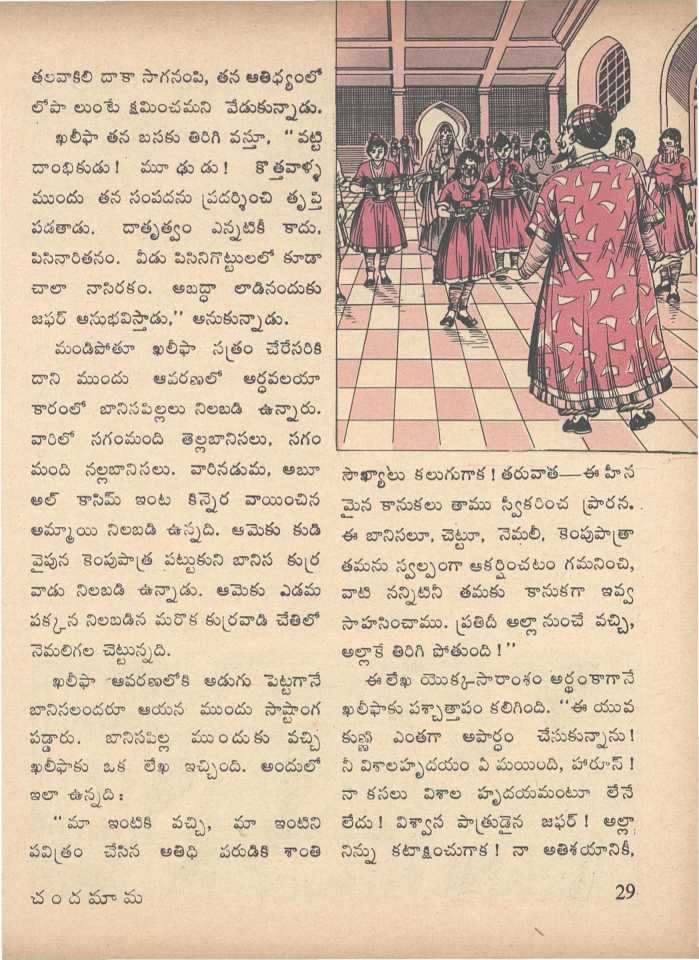 తలవాకిలి దాకా సాగనంపి, తన ఆతిథ్యంలో
లోపా లుంటే క్షమించమని వేడుకున్నాడు.
ఖలీఫా తన బసకు తిరిగి వస్తూ, "వట్టి
దాంభికుడు! మూఢుడు! కొత్తవాళ్ళ
ముందు తన సంపదను ప్రదర్శించి తృప్తి
పడతాడు. దాతృత్వం ఎన్నటికీ కాదు,
పిసినారితనం. వీడు పిసినిగొట్టులలో కూడా
చాలా నాసిరకం. అబద్ధా లాడినందుకు
జఫర్ అనుభవిస్తాడు," అనుకున్నాడు.
మండిపోతూ ఖలీఫా సత్రం చేరేసరికి
దాని ముందు ఆవరణలో అర్ధవలయా
కారంలో బానిసపిల్లలు నిలబడి ఉన్నారు.
వారిలో సగంమంది తెల్లబానిసలు, సగం
మంది నల్లబానిసలు. వారినడుమ, అబూ
అల్ కాసిమ్ ఇంట కిన్నెర వాయించిన
అమ్మాయి నిలబడి ఉన్నది. ఆమెకు కుడి
వైపున కెంపుపాత్ర పట్టుకుని బానిస కుర్ర
వాడు నిలబడి ఉన్నాడు. ఆమెకు ఎడమ
పక్కన నిలబడిన మరొక కుర్రవాడి చేతిలో
నెమలిగల చెట్టున్నది.
ఖలీఫా ఆవరణలోకి అడుగు పెట్టగానే
బానిసలందరూ ఆయన ముందు సాష్టాంగ
పడ్డారు. బానిసపిల్ల ముందుకు వచ్చి
ఖలీఫాకు ఒక లేఖ ఇచ్చింది. అందులో
ఇలా ఉన్నది:
"మా ఇంటికి వచ్చి, మా ఇంటిని
పవిత్రం చేసిన అతిథి వరుడికి శాంతి
సౌఖ్యాలు కలుగుగాక! తరువాత—ఈ హీన
మైన కానుకలు తాము స్వీకరించ ప్రార్థన.
ఈ బానిసలూ, చెట్టూ, నెమలీ, కెంపుపాత్రా
తమను స్వల్పంగా ఆకర్షించటం గమనించి,
వాటి నన్నిటినీ తమకు కానుకగా ఇవ్వ
సాహసించాము. ప్రతిదీ అల్లా నుంచే వచ్చి,
అల్లాకే తిరిగి పోతుంది!"
ఈ లేఖ యొక్క సారాంశం అర్థంకాగానే
ఖలీఫాకు పశ్చాత్తాపం కలిగింది. "ఈ యువ
కుణ్ణి ఎంతగా అపార్థం చేసుకున్నాను!
నీ విశాలహృదయం ఏ మయింది, హారూన్!
నా కసలు విశాల హృదయమంటూ లేనే
లేదు! విశ్వాస పాత్రుడైన జఫర్! అల్లా
నిన్ను కటాక్షించుగాక! నా అతిశయానికీ,
చందమామ
29